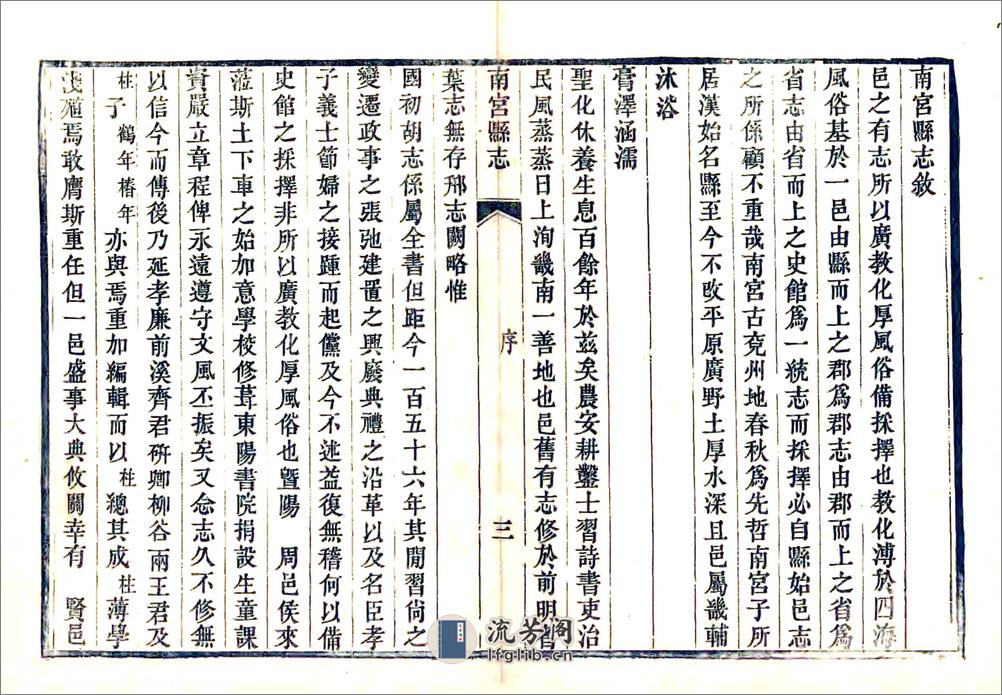 南宮縣志敘
邑之有志所以廣教化厚風俗備採擇也教化溥於四海
風俗基於一邑由縣而上之郡爲郡志由郡而上之省爲
省志由省而上之史館爲一統志而採擇必自縣始邑志
之所係顧不重哉南宮古兗州地春秋爲先哲南宮子所
居漢始名縣至今不改平原廣野土厚水深且邑屬畿輔
沐浴
膏澤涵濡
聖化休養生息百餘年於茲矣農安耕鑿士習詩書吏治
民風蒸蒸日上洵畿南一善地也邑舊有志修於前明者
南宮縣志 序 三
葉志無存邢志闕略惟
國初胡志係屬全書但距今一百五十六年其閒習尚之
變遷政事之張弛建置之興廢典禮之沿革以及名臣孝
子義士節婦之接踵而起儻及今不述益復無稽何以備
史館之採擇非所以廣教化厚風俗也暨陽 周邑侯來
蒞斯土下車之始加意學校修葺東陽書院捐設生童課
資嚴立章程俾永遠遵守文風丕振矣又念志久不修無
以信今而傳後乃延孝廉前溪齊君硏卿柳谷兩王君及
柱子鶴年椿年亦與焉重加編輯而以柱總其成柱薄學
淺殖焉敢膺斯重任但一邑盛事大典攸關幸有 賢邑
流芳阁
lfglib.cn